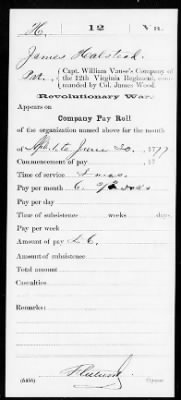 H. 12 Va.
James Halstead
Pvt., Capt. William Vause's Company of
the 12th Virginia Regiment, com-
manded by Col. James Wood.
Revolutionary War.
Appears on
Company Pay Roll
of the organization named above for the month
to June 20, 1777
Commencement of pay , 17
Time of service
Pay per month 6
Pay per day
Time of subsistence weeks days.
Pay per week
Amount of pay
Amount of subsistence
Total amount
Casualties
Remarks:
Copyist.